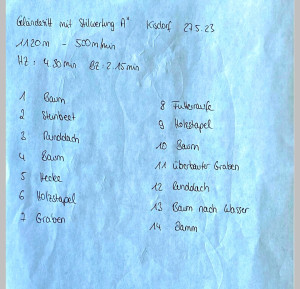 Geländeritt mit Stilwertung A* Kisdorf 27.5.23
1120m - 500m/min
HZ: 4.80min BZ: 2.15min
1 Baum
2 Sturbeet
3 Runddach
4 Baum
5 Hecke
6 Holzstapel
7 Graben
8 Futterraufe
9 Holzstapel
10 Baum
11 überbauter Graben
12 Runddach
13 Baum nach Wasser
14 Damm